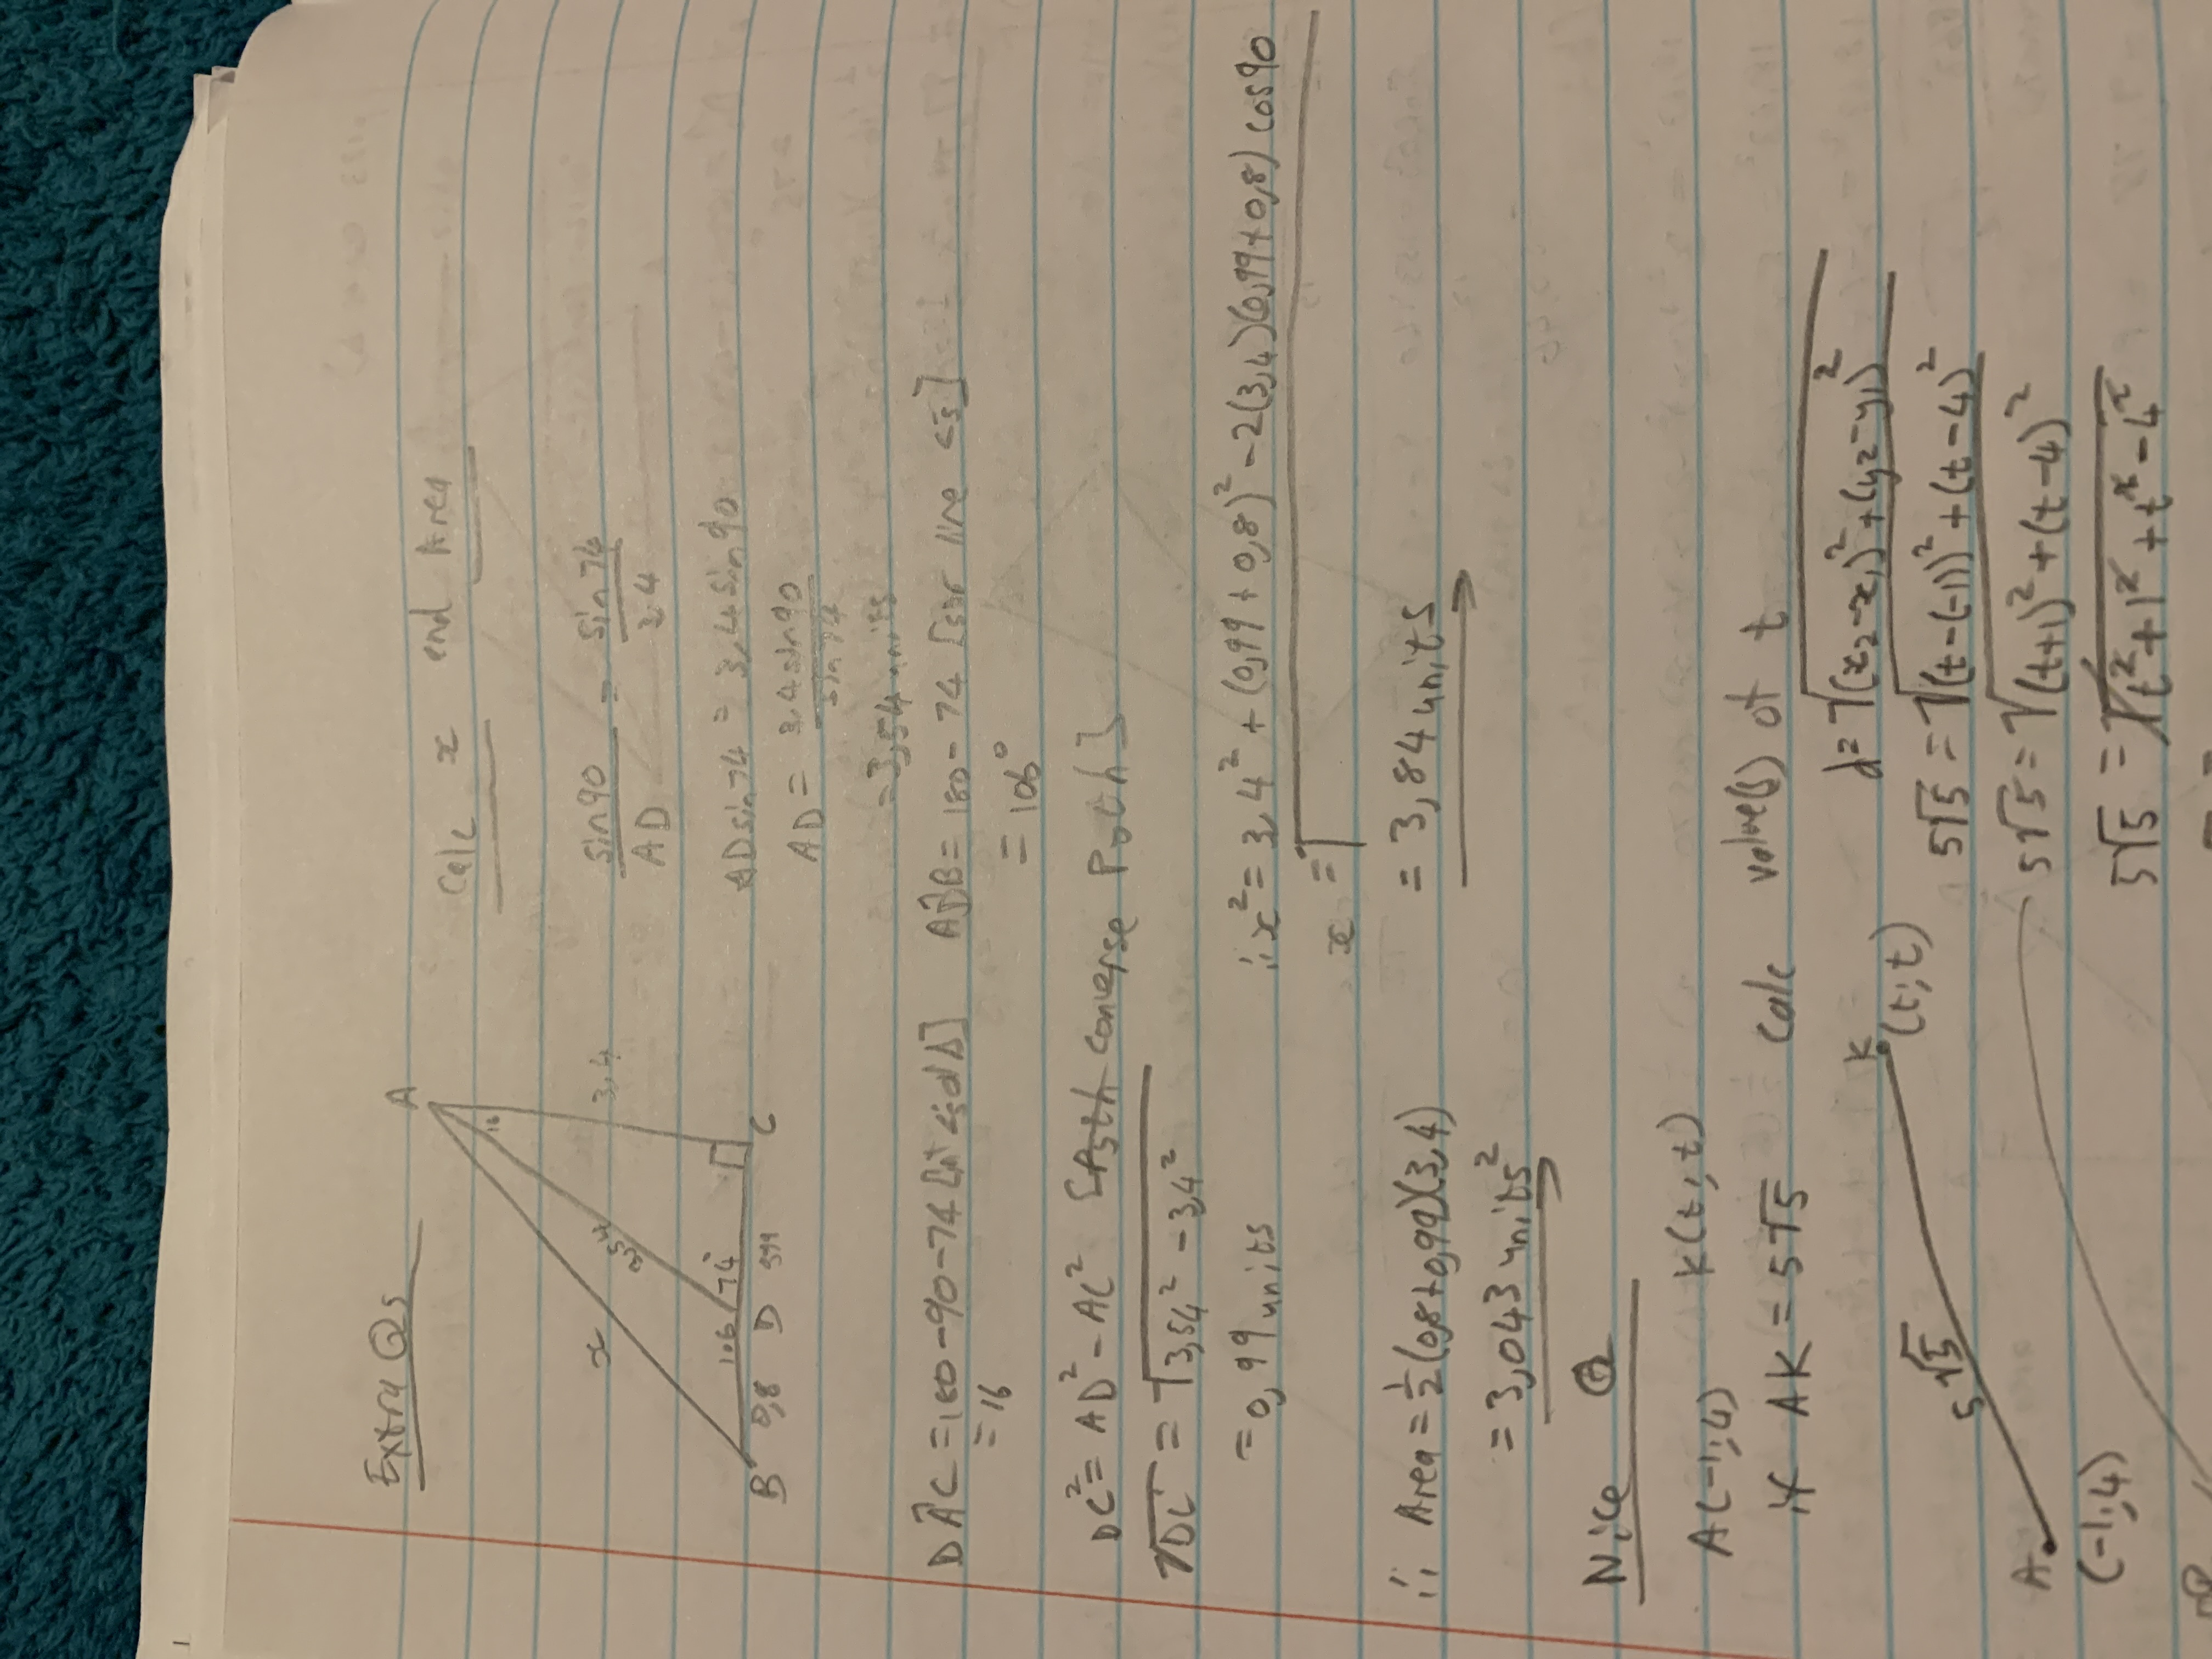 Extra Qs
A
Calc x and Area
16
x
3,54
3,4
106
74°
B 0,8 D C
sin90/AD = sin74/3.4
ADsin74 = 3,4sin90
AD = 3.4sin90/sin74
=3,54 units
DÂC = 180-90-74 [int <s of Δ]
= 16
AD̂B = 180 - 74 [str line <s]
= 106°
DC² = AD² - AC² [Pyth converse Pyth]
√DC² = √3,54² - 3,4²
= 0,99 units
∴ x² = 3,4² + (0,99 + 0,8)² - 2(3,4)(0,99+0,8) cos90
x = √
= 3,84 units
∴ Area = ½(0,8+0,99)(3,4)
= 3,043 units²
Nice Q
A(-1;4) K(t;t)
if AK = 5√5 Calc value(s) of t
d=√(x₂-x₁)²+(y₂-y₁)²
K
(t;t)
5√5
A
(-1;4)
5√5 = √(t-(-1))²+(t-4)²
5√5 = √(t+1)²+(t-4)²
5√5 = √t²+1²+t²-4²